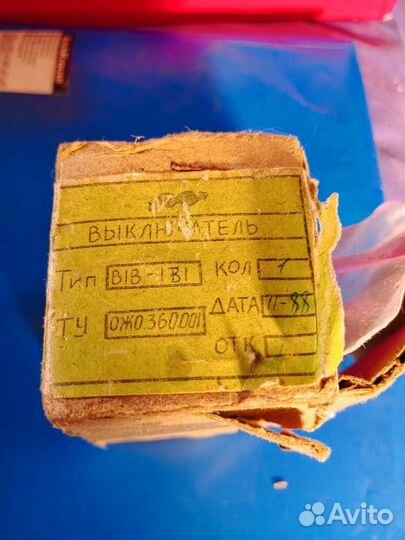 ВЫКЛЮЧАТЕЛЬ
Тип В1В-1В1 КОЛ 1
ТУ ОЖО.360.001 ДАТА 11-88
ОТК
Avito